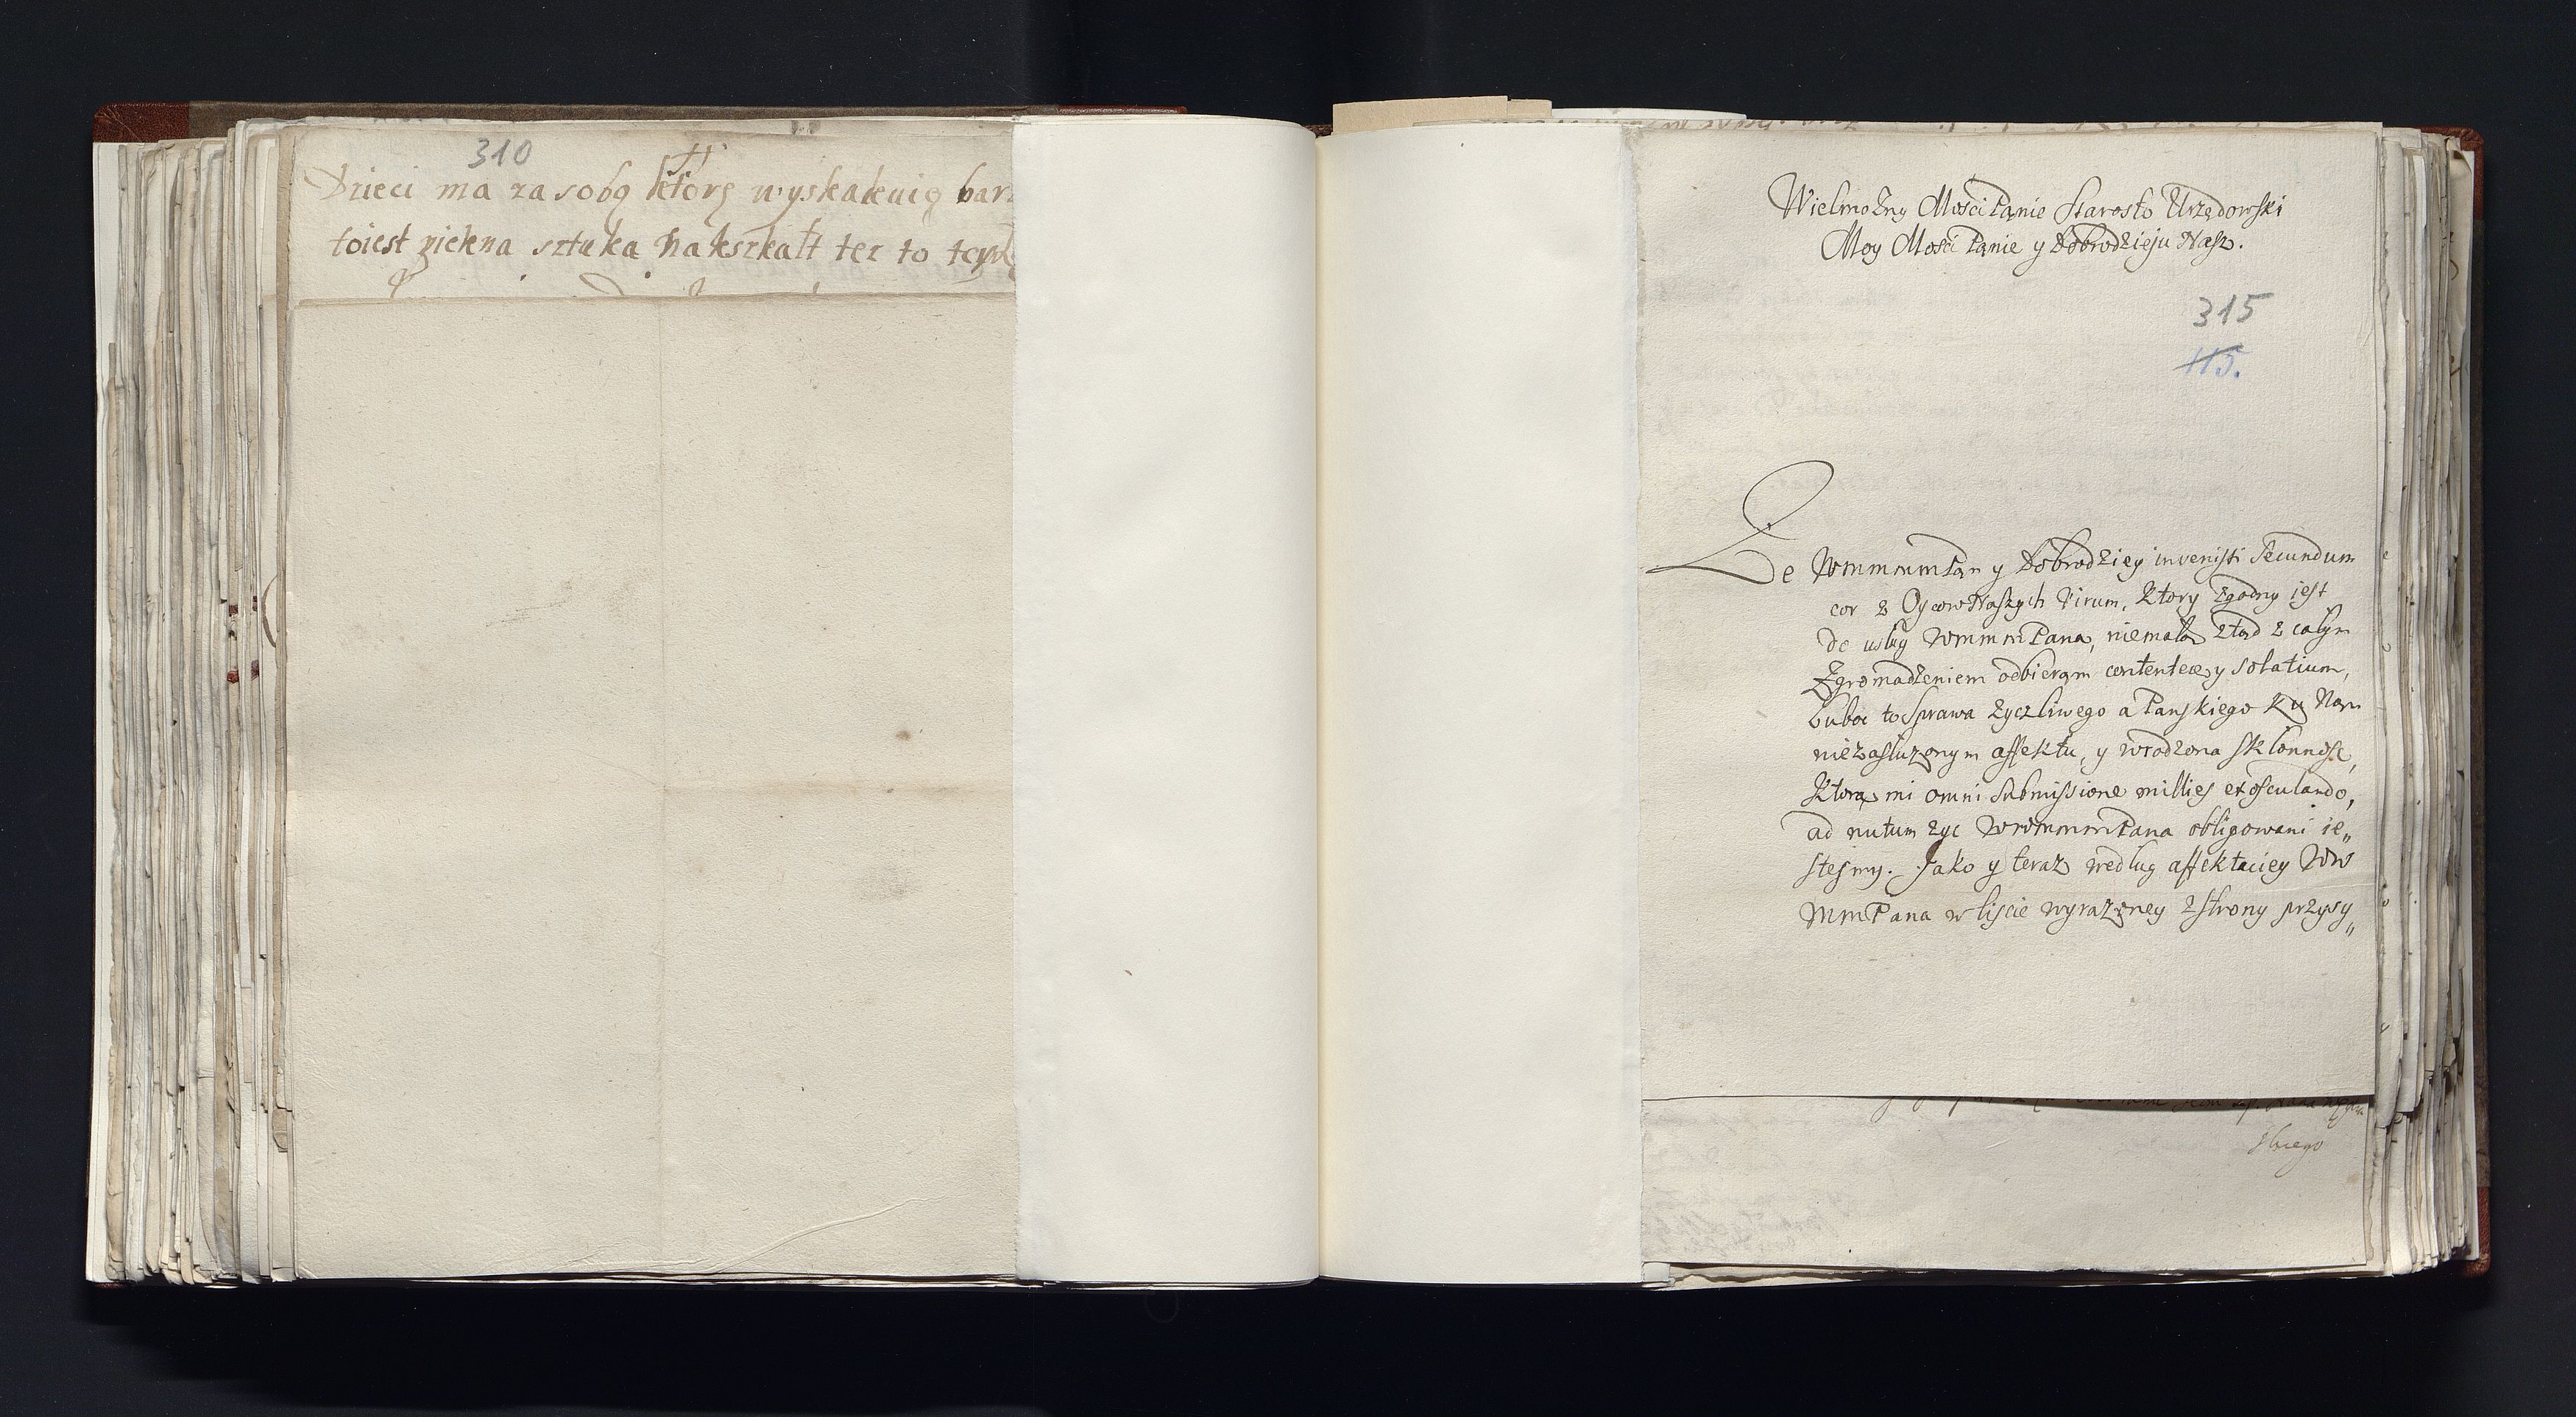 310
Dzieci ma za sobą ktorę wyskakuią bar
toiest piękna sztuka nakszkałt tez to
Wielmożny Mosci Panie Starosto Urzędowski
Moy Mosci Panie y Dobrodzieju Nasz.
315
115.
Ze Wmmmm Pan y Dobrodziey invenisti secundum
cor z Oycow Naszych Virum, ktory zgodny jest
do usług Wmmm Pana, niemałą ztąd z całym
Zgromadzeniem odbieram contentecę y solatium,
luboc to sprawa życzliwego a Panskiego ku Nam
niezasłużonym affektu, y wrodzona skłonnosc,
ktorą mi omni submissione millies exosculando,
ad nutum życ Wwmmm Pana obligowani ie„
stesmy. Jako y teraz według affektaciey Ww
Mm Pana w liscie wyrażoney z strony przysy„